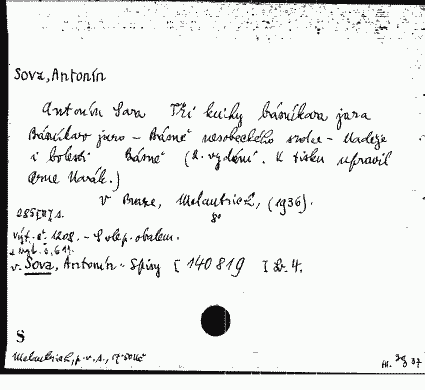 Sova, Antonín
Antonín Sova Tři knihy básníkova jara
Básníkovo jaro - Básně nesobeckého srdce - Naděje
i bolesti Básně (2. vydání. K tisku upravil
Arne Novák.)
V Praze, Melantrich, (1936).
8°
výt. č. 1208. - S olep. obalem.
v. Sova, Antonín - Spisy [ 140819 ] D. 4.
S
Melantrich, p. v. s.,
37